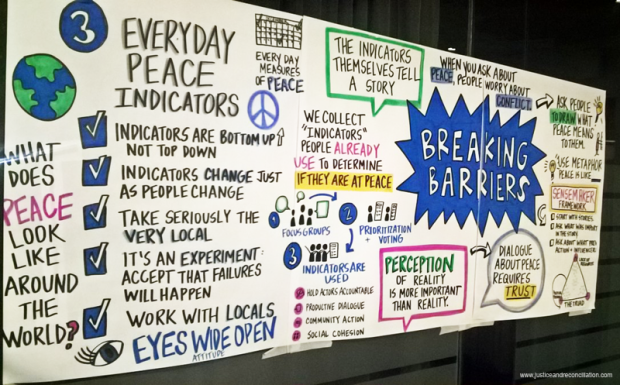 3
EVERYDAY
PEACE
INDICATORS
WHAT
DOES
PEACE
LOOK
LIKE
AROUND
THE
WORLD?
INDICATORS ARE BOTTOM UP
NOT TOP DOWN
INDICATORS CHANGE JUST
AS PEOPLE CHANGE
TAKE SERIOUSLY THE
VERY LOCAL
IT'S AN EXPERIMENT:
ACCEPT THAT FAILURES
WILL HAPPEN
WORK WITH LOCALS
EYES WIDE OPEN
ATTITUDE
EVERY DAY
MEASURES
OF PEACE
WE COLLECT
"INDICATORS"
PEOPLE ALREADY
USE TO DETERMINE
IF THEY ARE AT PEACE
1
FOCUS GROUPS
2
PRIORITIZATION
+ VOTING
3
INDICATORS ARE
USED
HOLD ACTORS ACCOUNTABLE
PRODUCTIVE DIALOGUE
COMMUNITY ACTION
SOCIAL COHESION
THE INDICATORS
THEMSELVES TELL
A STORY
PERCEPTION
OF REALITY
IS MORE IMPORTANT
THAN REALITY.
WHEN YOU ASK ABOUT
PEACE, PEOPLE WORRY ABOUT
CONFLICT.
BREAKING
BARRIERS
DIALOGUE
ABOUT PEACE
REQUIRES
TRUST
ASK PEOPLE
TO DRAW WHAT
PEACE MEANS
TO THEM.
USE METAPHOR
PEACE IS LIKE
SENSEMAKER
FRAMEWORK
START WITH STORIES
ASK WHAT WAS
IN THE STORY
ASK ABOUT WHAT
ACTION +
THE TRIAD
www.justiceandreconciliation.com